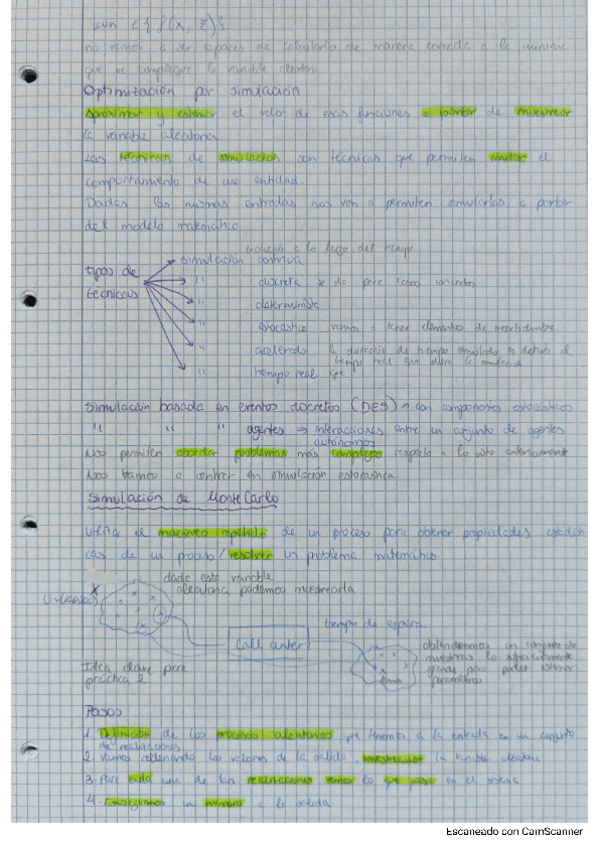 min E{f(x, ξ)}
no vamos a ser capaces de calcularlo de manera cerrada a la mínima
que se complique la variable aleatoria
Optimización por simulación
aproximar y estimar el valor de esas funciones a partir de muestrear
la variable aleatoria
Las técnicas de simulación son técnicas que permiten imitar el
comportamiento de una entidad.
Dadas las mismas entradas nos van a permitir simularlas a partir
del modelo matemático
evolución a lo largo del tiempo
tipos de técnicas
simulación continua
" discreta se da para
" determinista
" estocástica vamos a tener elementos de incertidumbre
" acelerada la duración de tiempo simulado es distinta al
tiempo real que dura la
" tiempo real
Simulación basada en eventos discretos (DES) → con componentes estocásticos
" " " agentes ⇒ interacciones entre un conjunto de agentes
autónomos
Nos permiten abordar problemas más complejos respecto a lo visto anteriormente
Nos vamos a centrar en simulación estocástica
Simulación de MonteCarlo
Utiliza el muestreo repetido de un proceso para obtener propiedades estadísti
cas de un proceso / resolver un problema matemático
dada esta variable
aleatoria podemos muestrearla
X
tiempo de espera
Call center
obtendremos un conjunto de
muestras lo suficientemente
grande para poder estimar
parámetros
Idea clave para
práctica 2
Pasos
1. Definición de los procesos aleatorios que tenemos a la entrada en un conjunto
de realizaciones
2. Vamos rellenando los valores de la salida muestreados la variable aleatoria
3. Para cada una de las realizaciones vemos lo que pasa en el sistema
4. Conseguimos un número a la salida
Escaneado con CamScanner